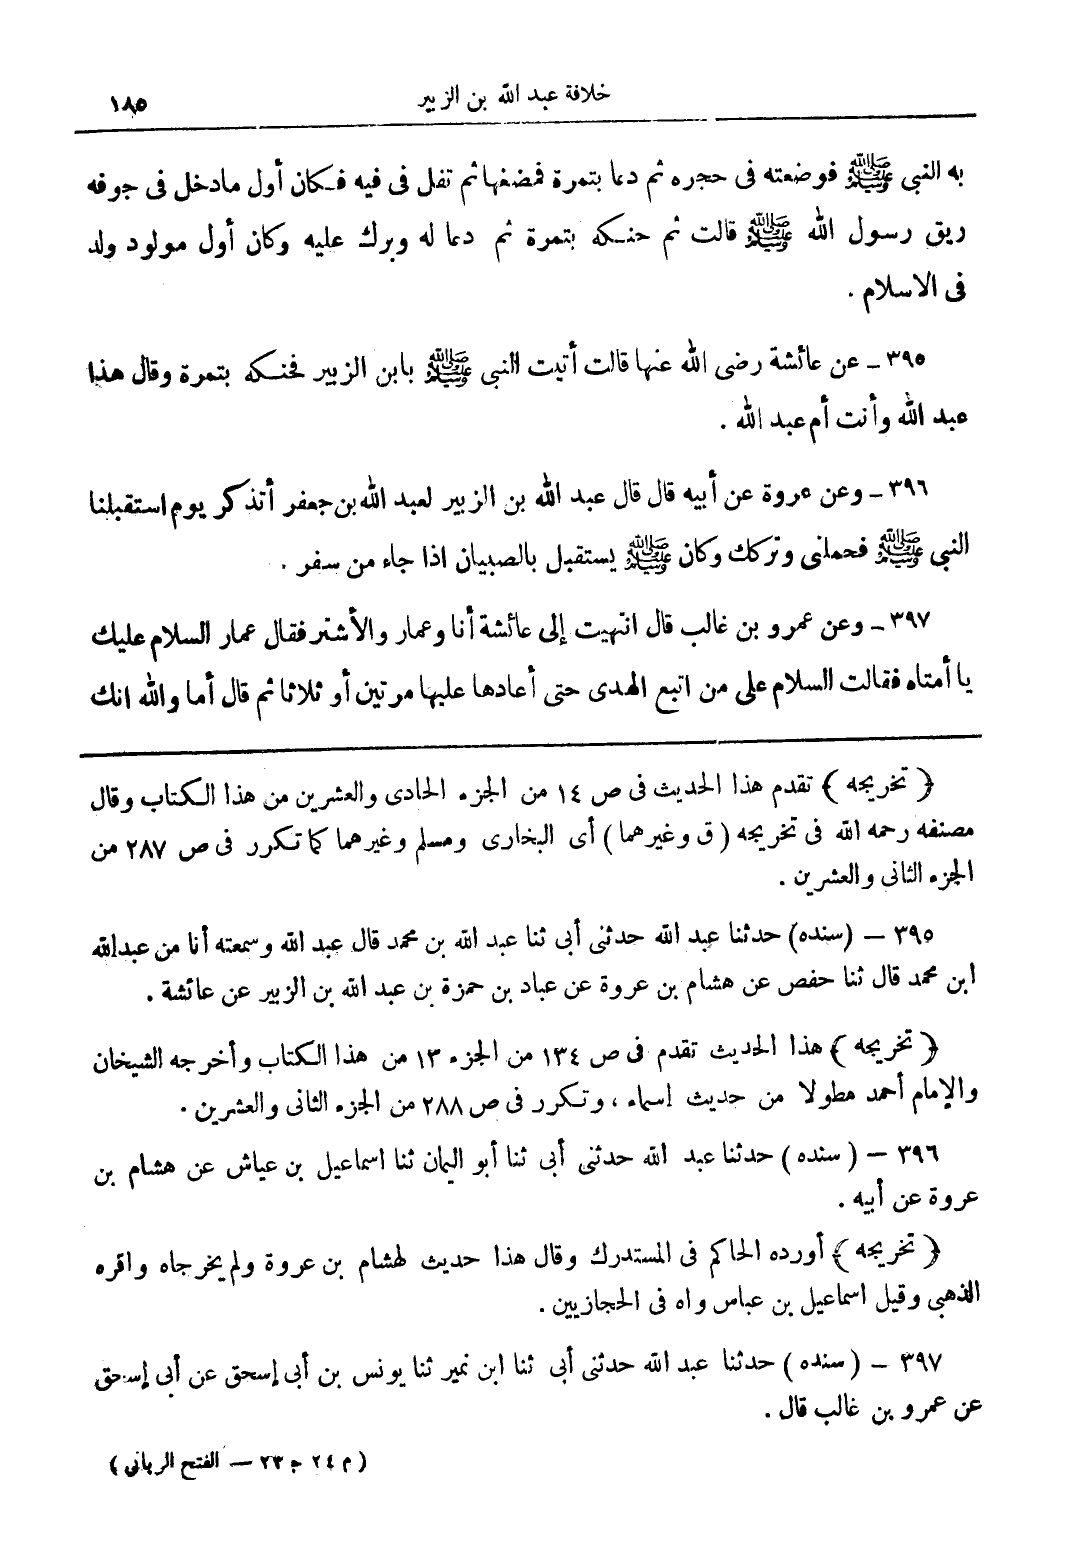 خلافة عبد الله بن الزبير ١٨٥
به النبى ﷺ فوضعته فى حجره ثم دعا بتمرة فمضغها ثم تفل فى فيه فكان أول مادخل فى جوفه
ريق رسول الله ﷺ قالت ثم حنكه بتمرة ثم دعا له وبرك عليه وكان أول مولود ولد
فى الاسلام .
٣٩٥ - عن عائشة رضى الله عنها قالت أتيت النبى ﷺ بابن الزبير فحنكه بتمرة وقال هذا
عبد الله وأنت أم عبد الله .
٣٩٦ - وعن عروة عن أبيه قال قال عبد الله بن الزبير لعبد الله بن جعفر أتذكر يوم استقبلنا
النبى ﷺ فحملنى وتركك وكان ﷺ يستقبل بالصبيان اذا جاء من سفر .
٣٩٧ - وعن عمرو بن غالب قال انتهيت إلى عائشة أنا وعمار والأشتر فقال عمار السلام عليك
يا أمتاه فقالت السلام على من اتبع الهدى حتى أعادها عليها مرتين أو ثلاثا ثم قال أما والله انك
﴿ تخريجه ﴾ تقدم هذا الحديث فى ص ١٤ من الجزء الحادى والعشرين من هذا الكتاب وقال
مصنفه رحمه الله فى تخريجه ( ق وغيرهما ) أى البخارى ومسلم وغيرهما كما تكرر فى ص ٢٨٧ من
الجزء الثانى والعشرين .
٣٩٥ — (سنده) حدثنا عبد الله حدثنى أبى ثنا عبد الله بن محمد قال عبد الله وسمعته أنا من عبدالله
ابن محمد قال ثنا حفص عن هشام بن عروة عن عباد بن حمزة بن عبد الله بن الزبير عن عائشة .
﴿ تخريجه ﴾ هذا الحديث تقدم فى ص ١٣٤ من الجزء ١٣ من هذا الكتاب وأخرجه الشيخان
والإمام أحمد مطولا من حديث اسماء ، وتكرر فى ص ٢٨٨ من الجزء الثانى والعشرين .
٣٩٦ — ( سنده ) حدثنا عبد الله حدثنى أبى ثنا أبو اليمان ثنا اسماعيل بن عياش عن هشام بن
عروة عن أبيه .
﴿ تخريجه ﴾ أورده الحاكم فى المستدرك وقال هذا حديث لهشام بن عروة ولم يخرجاه واقره
الذهبى وقيل اسماعيل بن عباس واه فى الحجازيين .
٣٩٧ — ( سنده ) حدثنا عبد الله حدثنى أبى ثنا ابن نمير ثنا يونس بن أبى إسحق عن أبى إسحق
عن عمرو بن غالب قال .
( م ٢٤ ج ٢٣ — الفتح الربانى )